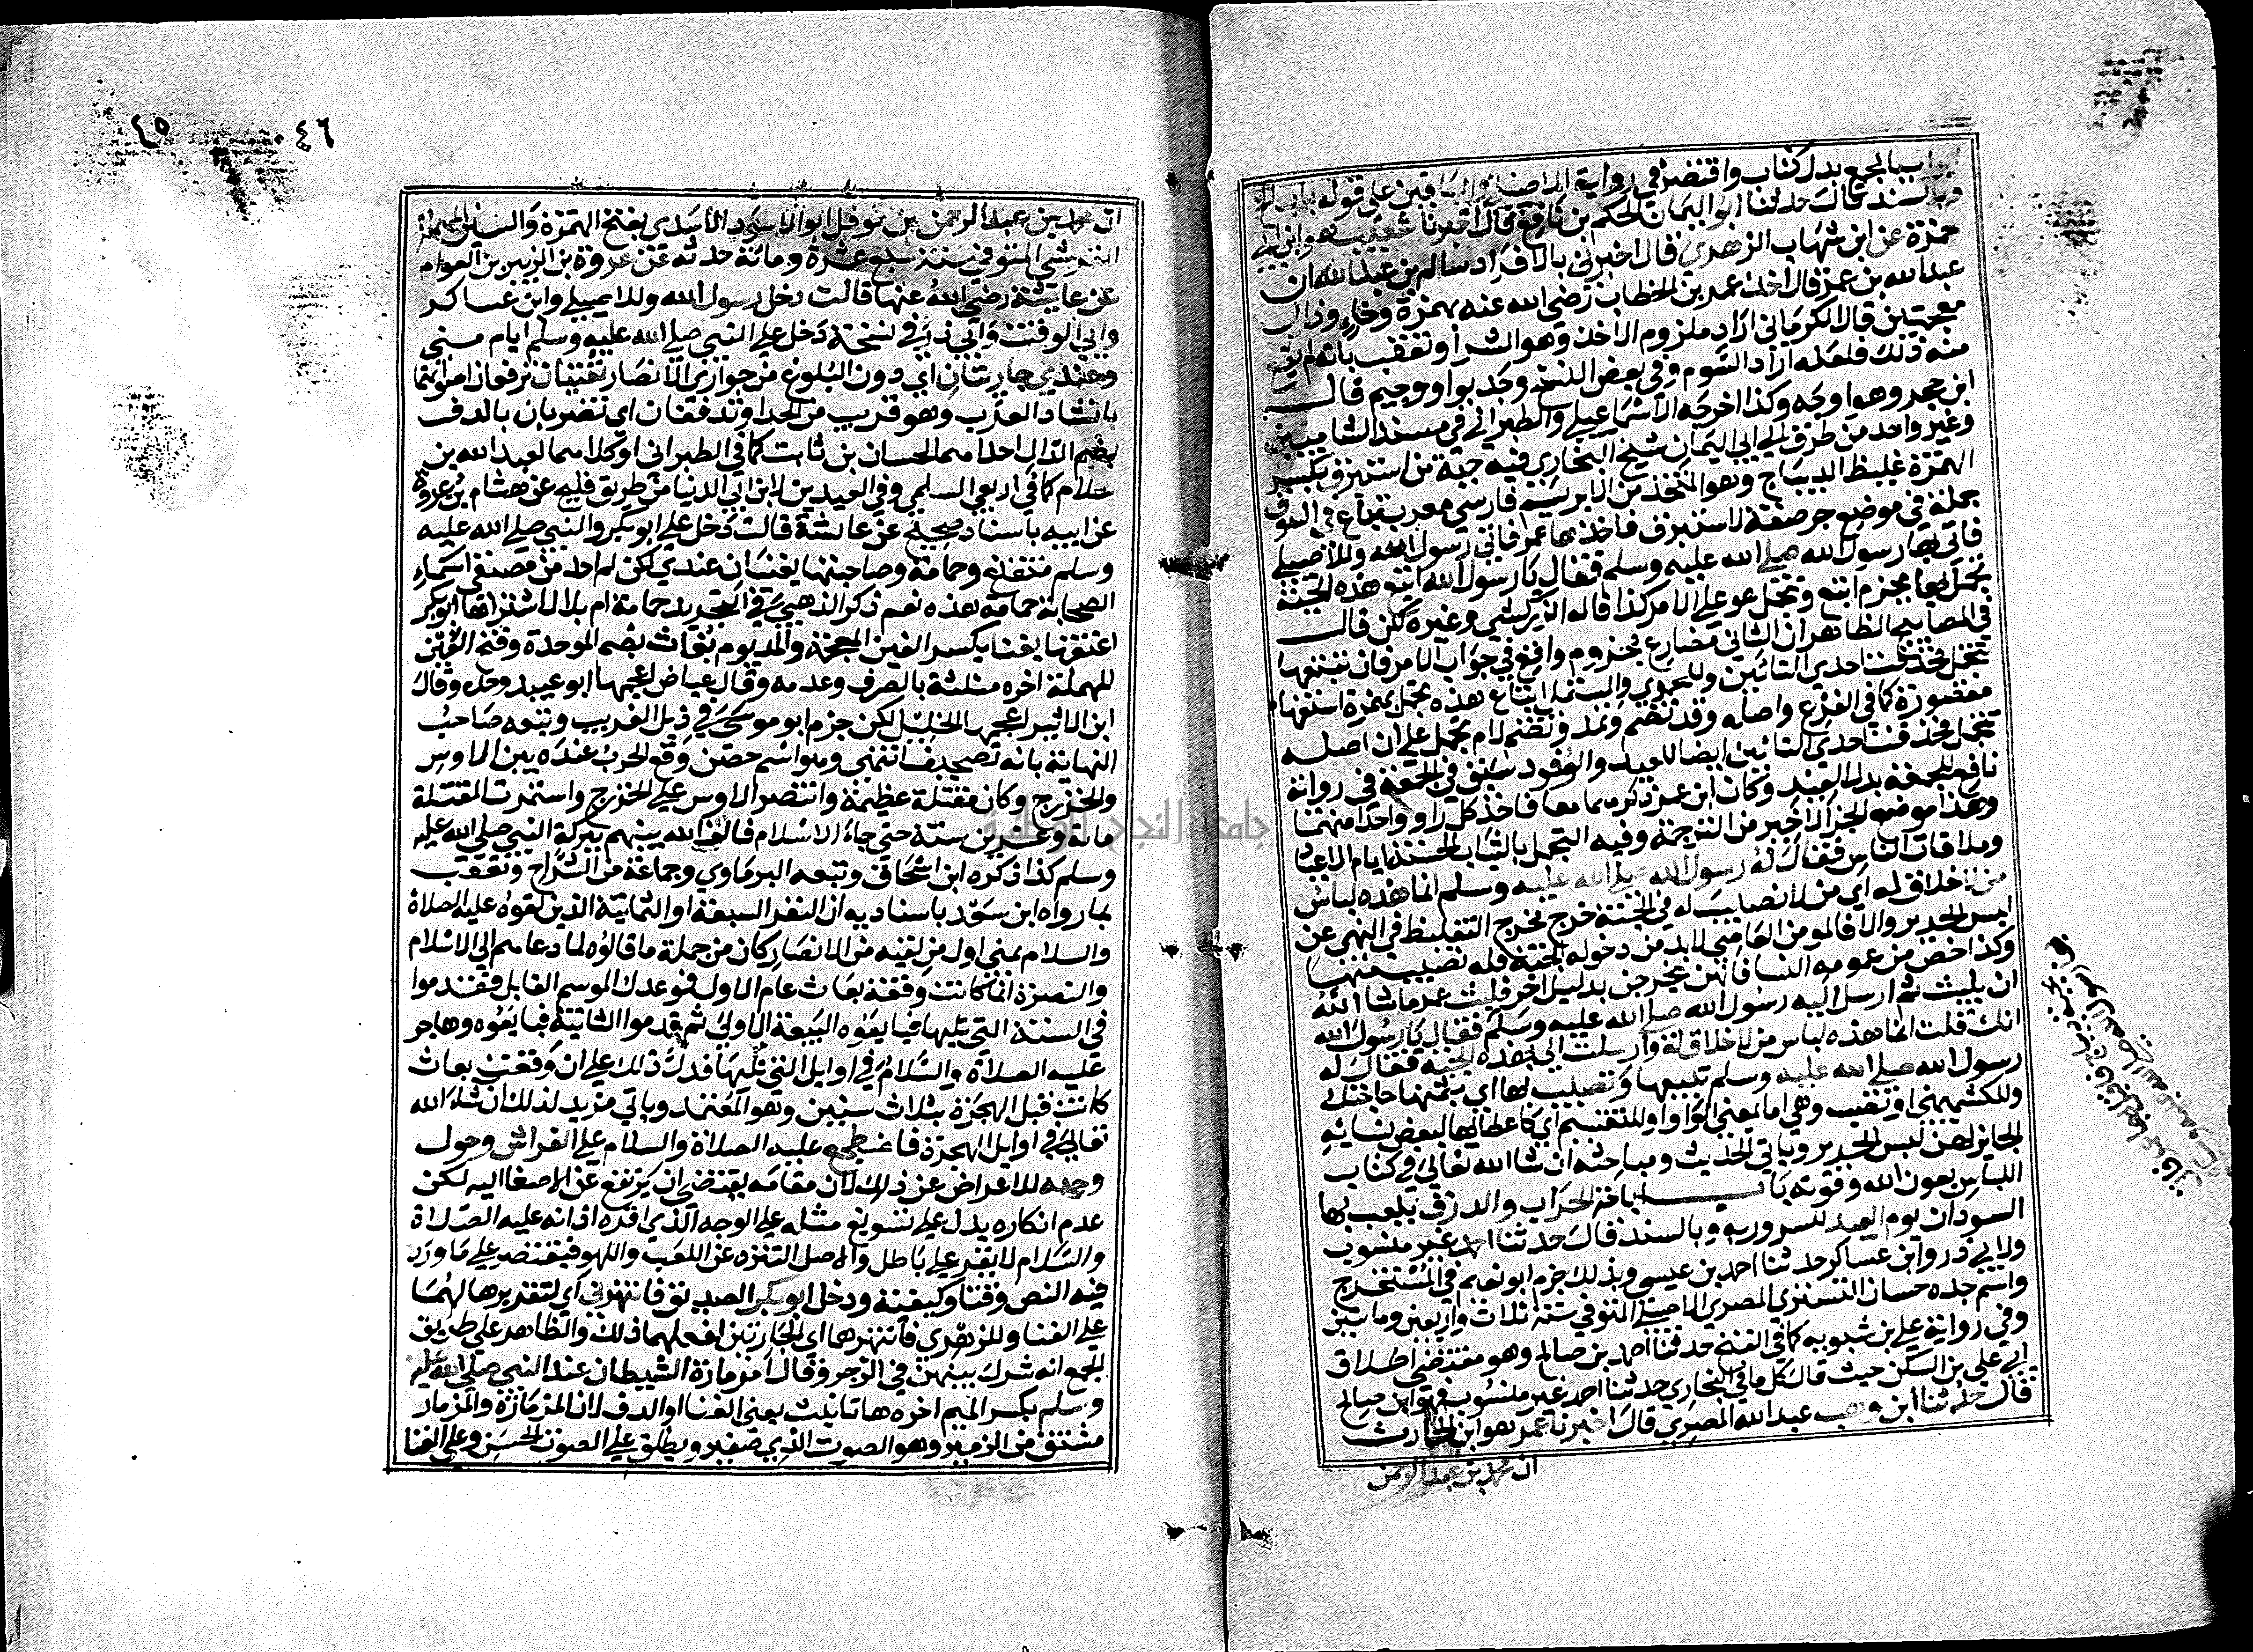 ابواب بالجمع بدل كتاب واقتصر في رواية الاصيلي والباقين على قوله باب الخ
وبالسند قال حدثنا ابو اليمان الحكم بن نافع قال اخبرنا شعيب هو ابن ابي
حمزة عن ابن شهاب الزهري قال اخبرني بالافراد سالم بن عبد الله ان
عبد الله بن عمر قال اخذ عمر بن الخطاب رضي الله عنه بهمزة وخاء وذال
معجمتين قال الكرماني اراد ملزوم الاخذ وهو الشرا وتعقب بانه لم يقع
منه ذلك فلعله اراد السوم وفي بعض النسخ وجد بواو وجيم قال
ابن حجر وهو اوجه وكذا اخرجه الاسماعيلي والطبراني في مسند الشاميين
وغير واحد من طرق الي ابي اليمان شيخ البخاري فيه جبة من استبرق بكسر
الهمزة غليظ الديباج وهو المتخذ من الابريسم فارسي معرب تباع في السوق
جملة في موضع جر صفة لاستبرق فاخذها عمر فاتي رسول الله وللاصيلي
فاتي بها رسول الله صلي الله عليه وسلم فقال يا رسول الله ابتع هذه الجبة
تجمل بها بجزم ابتع وتجمل عو علي الامر كذا قاله الزركشي وغيره لكن قال
في المصابيح الظاهر ان الثاني مضارع مجزوم واقع في جواب الامر فان تبتعها
تتجمل فحذفت احدي التائين وللحموي والمستملي ابتاع هذه تجمل بهمزة استفهام
مقصورة كما في الفرع واصله وقد تضم وتمد وتضم لام تجمل علي ان اصله
تتجمل فحذفت احدي التائين ايضا للعيد والوفود سبق في الجمعة في رواية
نافع للجمعة بدل العيد وكان ابن عمر ذكرهما معا فاخذ كل راو واحدا منهما
وهذا موضع الجزء الاخير من الترجمة وفيه التجمل بالثياب الحسنة ايام الاعياد
وملاقات الناس فقال له رسول الله صلي الله عليه وسلم انما هذه لباس
من لا خلاق له اي من لا نصايب له في الجنة خرج مخرج التغليظ في النهي عن
لبس الحرير والا فالمومن العاصي لابد من دخوله الجنة فله نصيب منها
وكذا خص من عمومه النسا فانهن خرجن بدليل اخر فلبث عمر ما شا الله
ان يلبث ثم ارسل اليه رسول الله صلي الله عليه وسلم فقال يا رسول الله
انك قلت انما هذه لباس من لا خلاق له وارسلت الي بهذه الجبة فقال له
رسول الله صلي الله عليه وسلم تبيعها وتصيب بها اي بثمنها حاجتك
وللكشميهني او تصيب وهي اما بمعني الواو او للتقسيم اي كاعطائها لبعض نسائه
الجايز لهن لبس الحرير وياتي الحديث ومباحثه ان شا الله تعالي في كتاب
اللباس بعون الله وقوته باب اباحة الحراب والدرق يلعب بها
السودان يوم العيد للسرور به وبالسند قال حدثنا احمد غير منسوب
ولابي ذر وابن عساكر حدثنا احمد بن عيسي وبذلك جزم ابو نعيم في المستخرج
واسم جده حسان التستري المصري الاصل المتوفي سنة ثلاث واربعين ومايتين
وفي رواية علي بن شبويه كما في الفتح حدثنا احمد بن صالح وهو مقتضي اطلاق
ابي علي بن السكن حيث قال كل ما في البخاري حدثنا احمد غير منسوب فهو ابن صالح
قال حدثنا ابن وهب عبد الله المصري قال اخبرنا عمر هو ابن الحارث
ان محمد بن عبد الرحمن
٤٥
٤٦
ان محمد بن عبد الرحمن بن نوفل ابو الاسود الاسدي بفتح الهمزة والسين المهملة
القرشي المتوفي سنة سبع عشرة ومائة حدثه عن عروة بن الزبير بن العوام
عن عايشة رضي الله عنها قالت دخل رسول الله وللاصيلي وابن عساكر
وابي الوقت وابي ذر في نسخة دخل علي النبي صلي الله عليه وسلم ايام مني
وعندي جاريتان اي دون البلوغ من جواري الانصار تغنيان ترفعان اصواتهما
بانشاد العرب وهو قريب من الحدا وتدففان اي تضربان بالدف
بضم الدال احداهما لحسان بن ثابت كما في الطبراني او كلاهما لعبد الله بن
سلام كما في اربعي السلمي وفي العيدين لابن ابي الدنيا من طريق فليح عن هشام بن عروة
عن ابيه باسناد صحيح عن عائشة قالت دخل علي ابو بكر والنبي صلي الله عليه
وسلم متقنع وحمامة وصاحبتها يغنيان عندي لكن لم احد من مصنفي اسماء
الصحابة حمامة هذه نعم ذكر الذهبي في التجريد حمامة ام بلال اشتراها ابو بكر
اعتقها بغنا بكسر الغين المعجمة والمد يوم بعاث بضم الموحدة وفتح العين
المهملة اخره مثلثة بالصرف وعدمه وقال عياض اعجمها ابو عبيد وحده وقال
ابن الاثير اعجمها الخليل لكن جزم ابو موسي في ذيل الغريب وتبعه صاحب
النهاية بانه تصحيف انتهي وهو اسم حصن وقع الحرب عنده بين الاوس
والخزرج وكان مقتلة عظيمة وانتصر الاوس علي الخزرج واستمرت المقتلة
مائة وعشرين سنة حتي جاء الاسلام فالف الله بينهم ببركة النبي صلي الله عليه
وسلم كذا ذكره ابن اسحاق وتبعه البرماوي وجماعة من الشراح وتعقب
بما رواه ابن سعد باسناديه ان النفر السبعة او الثمانية الذين لقوه عليه الصلاة
والسلام بمني اول من لقيه من الانصار كان من جملة ما قالوه لما دعاهم الي الاسلام
والنصرة انما كانت وقعة بعاث عام الاول فموعدك الموسم القابل فقدموا
في السنة التي تليها فبايعوه البيعة الاولي ثم قدموا الثانية فبايعوه وهاجر
عليه الصلاة والسلام في اوايل التي تليها فدل ذلك علي ان وقعة بعاث
كانت قبل الهجرة بثلاث سنين وهو المعتمد وياتي مزيد لذلك ان شاء الله
تعالي في اوايل الهجرة فاضطجع عليه الصلاة والسلام علي الفراش وحول
وجهه للاعراض عن ذلك لان مقامه يقتضي ان يرتفع عن الاصغا اليه لكن
عدم انكاره يدل علي تسويغ مثله علي الوجه الذي اقره اذ انه عليه الصلاة
والسلام لا يقر علي باطل والاصل التنزه عن اللعب واللهو فيقتصر علي ما ورد
فيه النص وقتا وكيفية ودخل ابو بكر الصديق فانتهرني اي لتقريرها لهما
علي الغنا وللزهري فانتهرهما اي الجاريتين لفعلهما ذلك والظاهر علي طريق
الجمع انه شرك بينهن في الزجر وقال مزمارة الشيطان عند النبي صلي الله عليه
وسلم بكسر الميم اخره ها تانيث يعني الغنا او الدف لان المزمارة والمزمار
مشتق من الزمير وهو الصوت الذي له صفير ويطلق علي الصوت الحسن وعلي الغنا
جامعة النجاح الوطنية